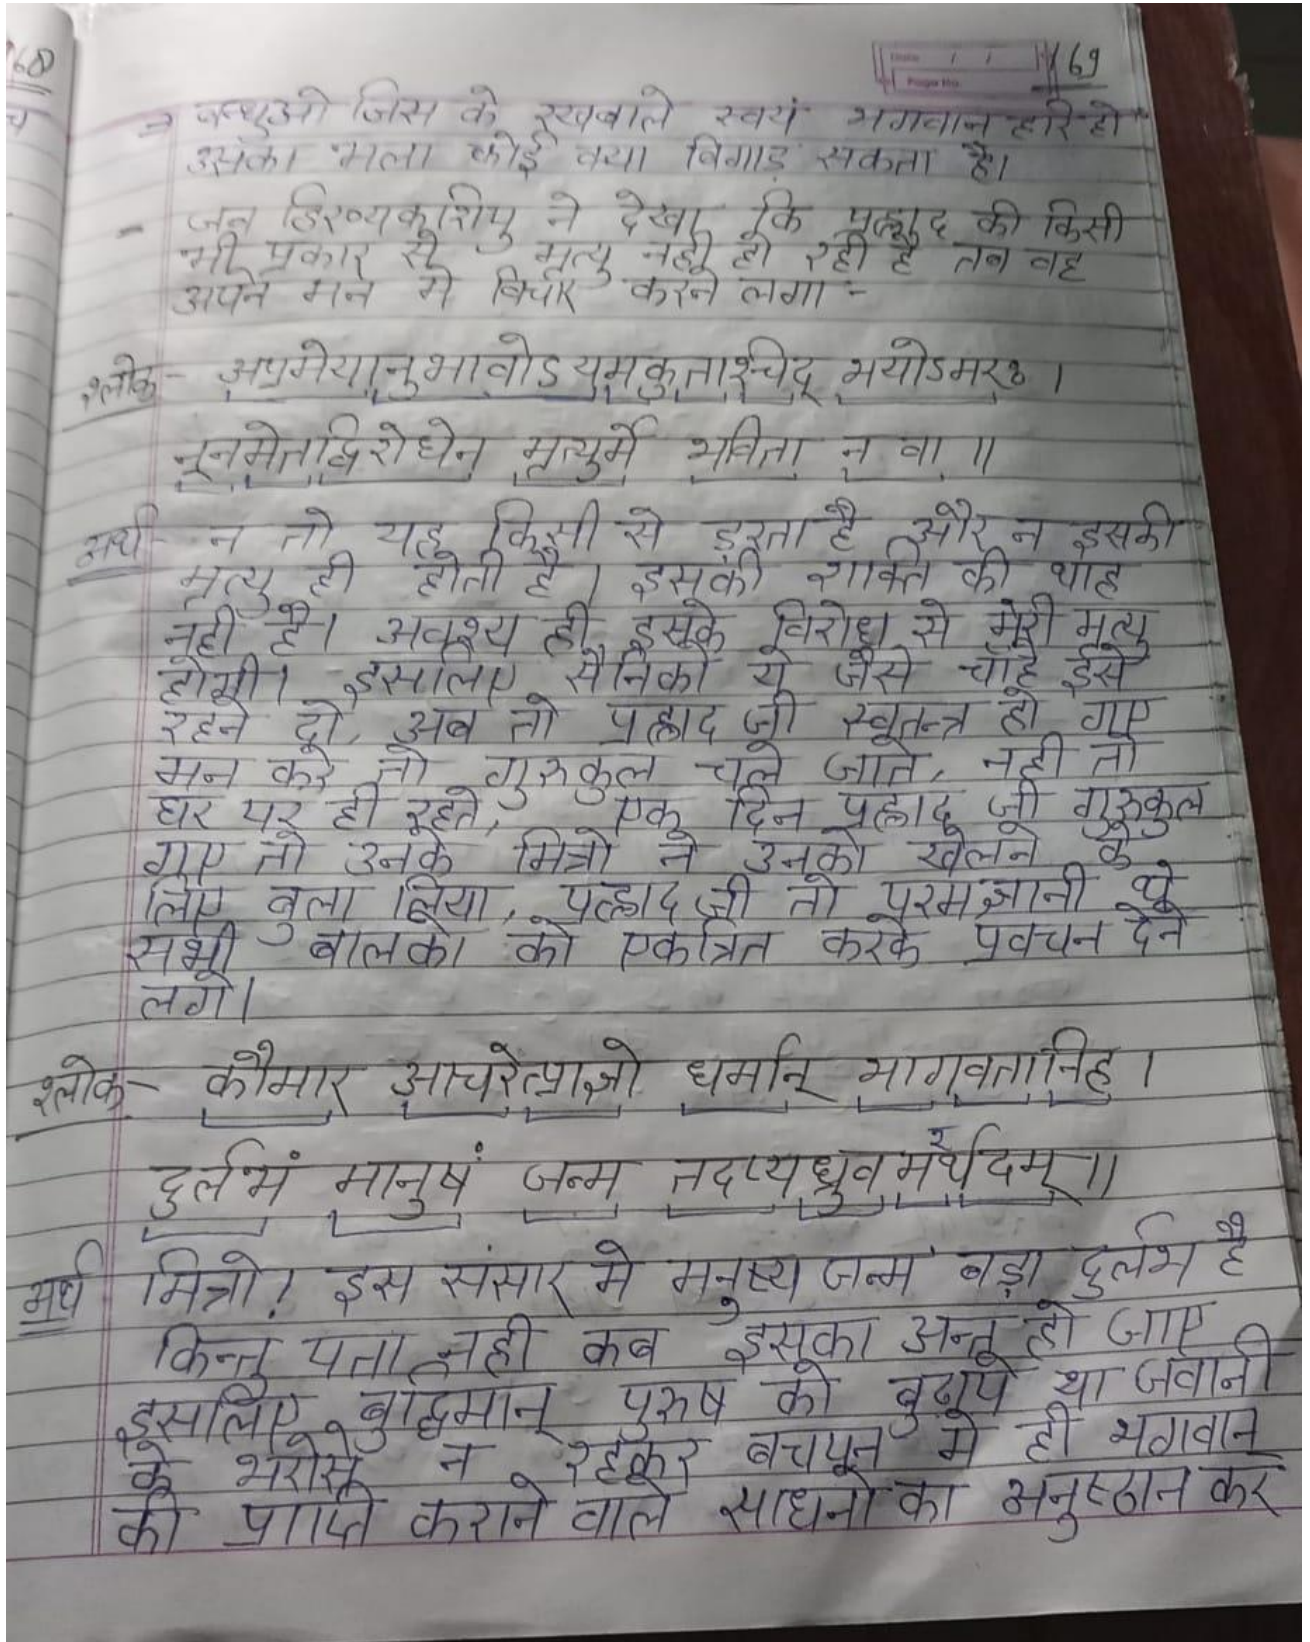 168
च
Date / /
Page No.
169
⇒ बन्धुओ जिस के रखवाले स्वयं भगवान हरि हो
उसका भला कोई क्या विगाड़ सकता है।
- जब हिरण्यकशिपु ने देखा कि प्रल्हाद की किसी
भी प्रकार से मृत्यु नही हो रही है तब वह
अपने मन मे विचार करने लगा :-
श्लोक - अप्रमेयानुभावोऽयमकुतश्चिद् भयोऽमरः ।
नूनमेतद्विरोधेन मृत्युर्मे भविता न वा ॥
अर्थ - न तो यह किसी से डरता है और न इसकी
मृत्यु ही होती है। इसकी शक्ति की थाह
नही है। अवश्य ही इसके विरोध से मेरी मृत्यु
होगी। इसलिए सैनिको ये जैसे चाहे ईसे
रहने दो, अब तो प्रह्लाद जी स्वतन्त्र हो गए
मन करे तो गुरुकुल चले जाते, नही तो
घर पर ही रहते, एक दिन प्रह्लाद जी गुरुकुल
गए तो उनके मित्रो ने उनको खेलने के
लिए बुला लिया, प्रह्लाद जी तो परमज्ञानी थे
सभी बालको को एकत्रित करके प्रवचन देने
लगे।
श्लोक - कौमार आचरेत्प्राज्ञो धर्मान् भागवतानिह ।
दुर्लभं मानुषं जन्म तदप्यध्रुवमर्थदम् ॥
अर्थ मित्रो! इस संसार मे मनुष्य जन्म बड़ा दुर्लभ है
किन्तु पता नही कब इसका अन्त हो जाए
इसलिए बुद्धिमान् पुरुष को बुढापे या जवानी
के भरोसे न रहकर बचपन मे ही भगवान्
की प्राप्ति कराने वाले साधनो का अनुष्ठान कर